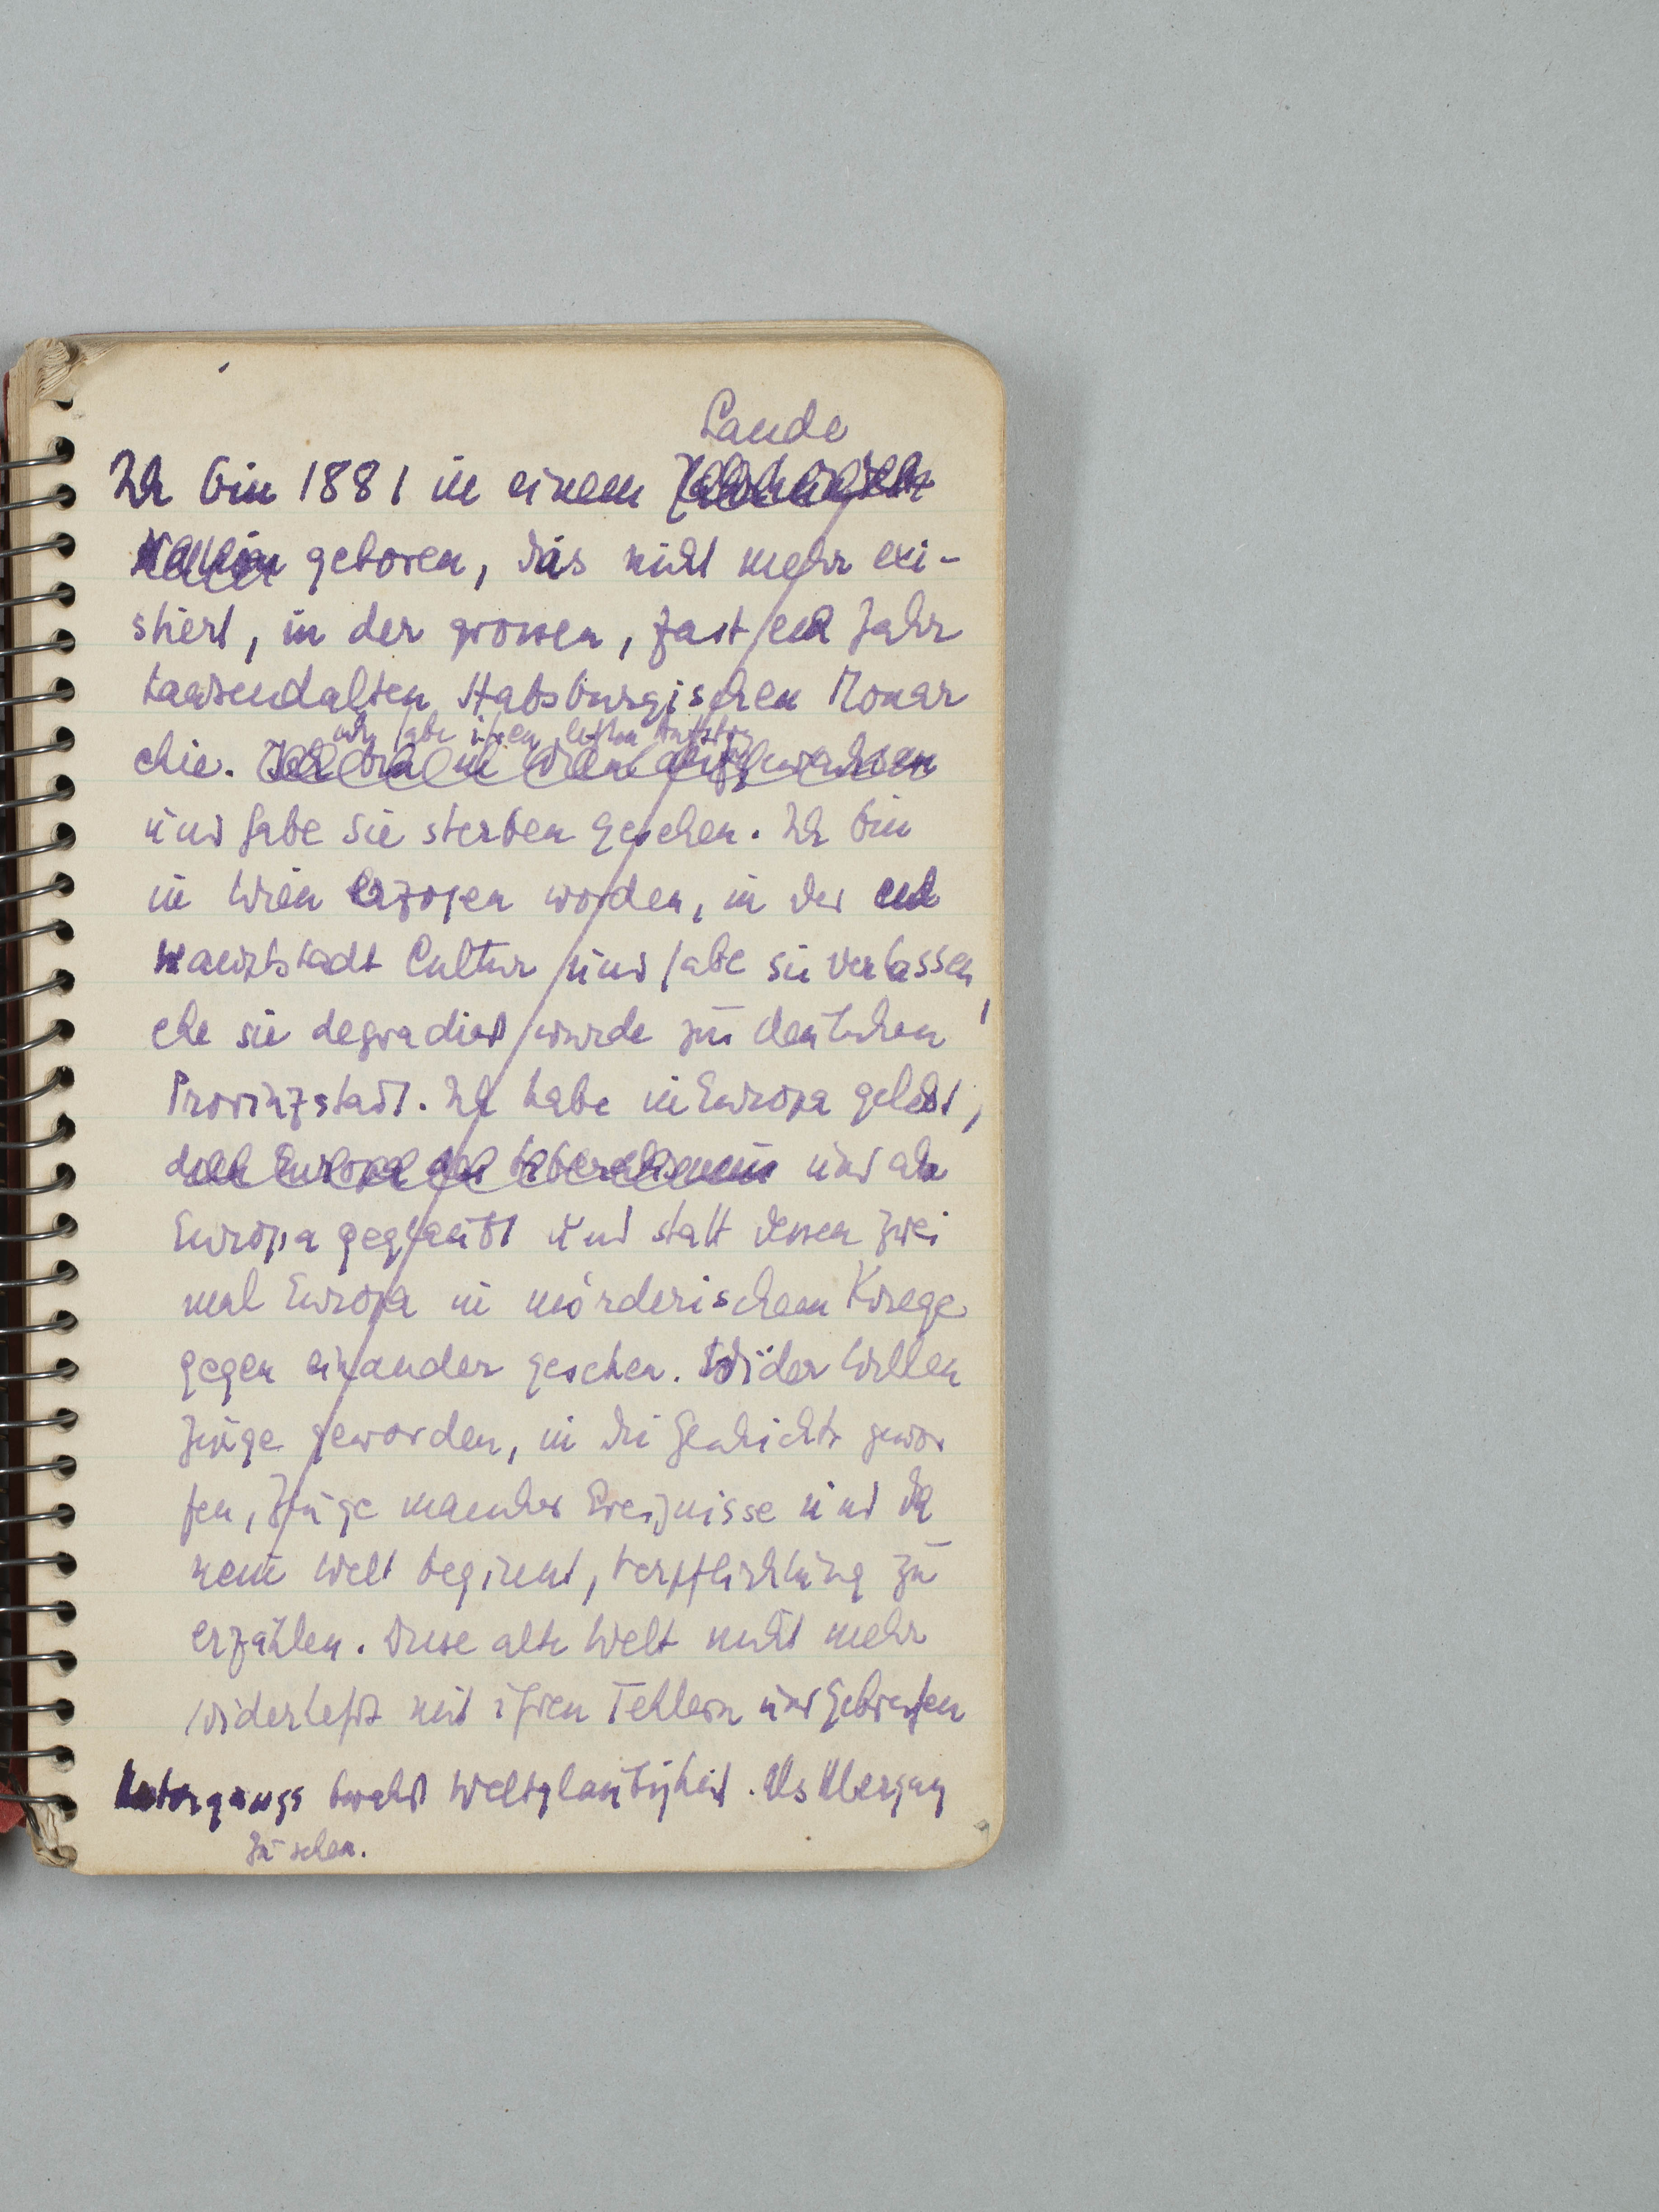 Lande
Ich bin 1881 in einem
geboren, das nicht mehr exi-
stiert, in der grossen, fast ein Jahr
tausendalten Habsburgischen Monar
ich habe ihren letzten
chie. Ich bin in Wien aufgewachsen
und habe sie sterben gesehen. Ich bin
in Wien erzogen worden, in der
Cultur und habe sie verlassen,
ehe sie degradiert wurde zur deutschen
Provinzstadt. Ich habe in Europa gelebt,
dem Europa des Liberalismus und an
Europa geglaubt und statt dessen zwei
mal Europa in mörderischem Kriege
gegen einander gesehen. Wider Willen
Zeuge geworden, in die Geschichte gewor
fen, Zeuge mancher Ereignisse und da
neue Welt beginnt, Verpflichtung zu
erzählen. Diese alte Welt nicht mehr
mit ihren Fehlern und Gebrechen
Weltgläubigkeit. Als
zu sehen.